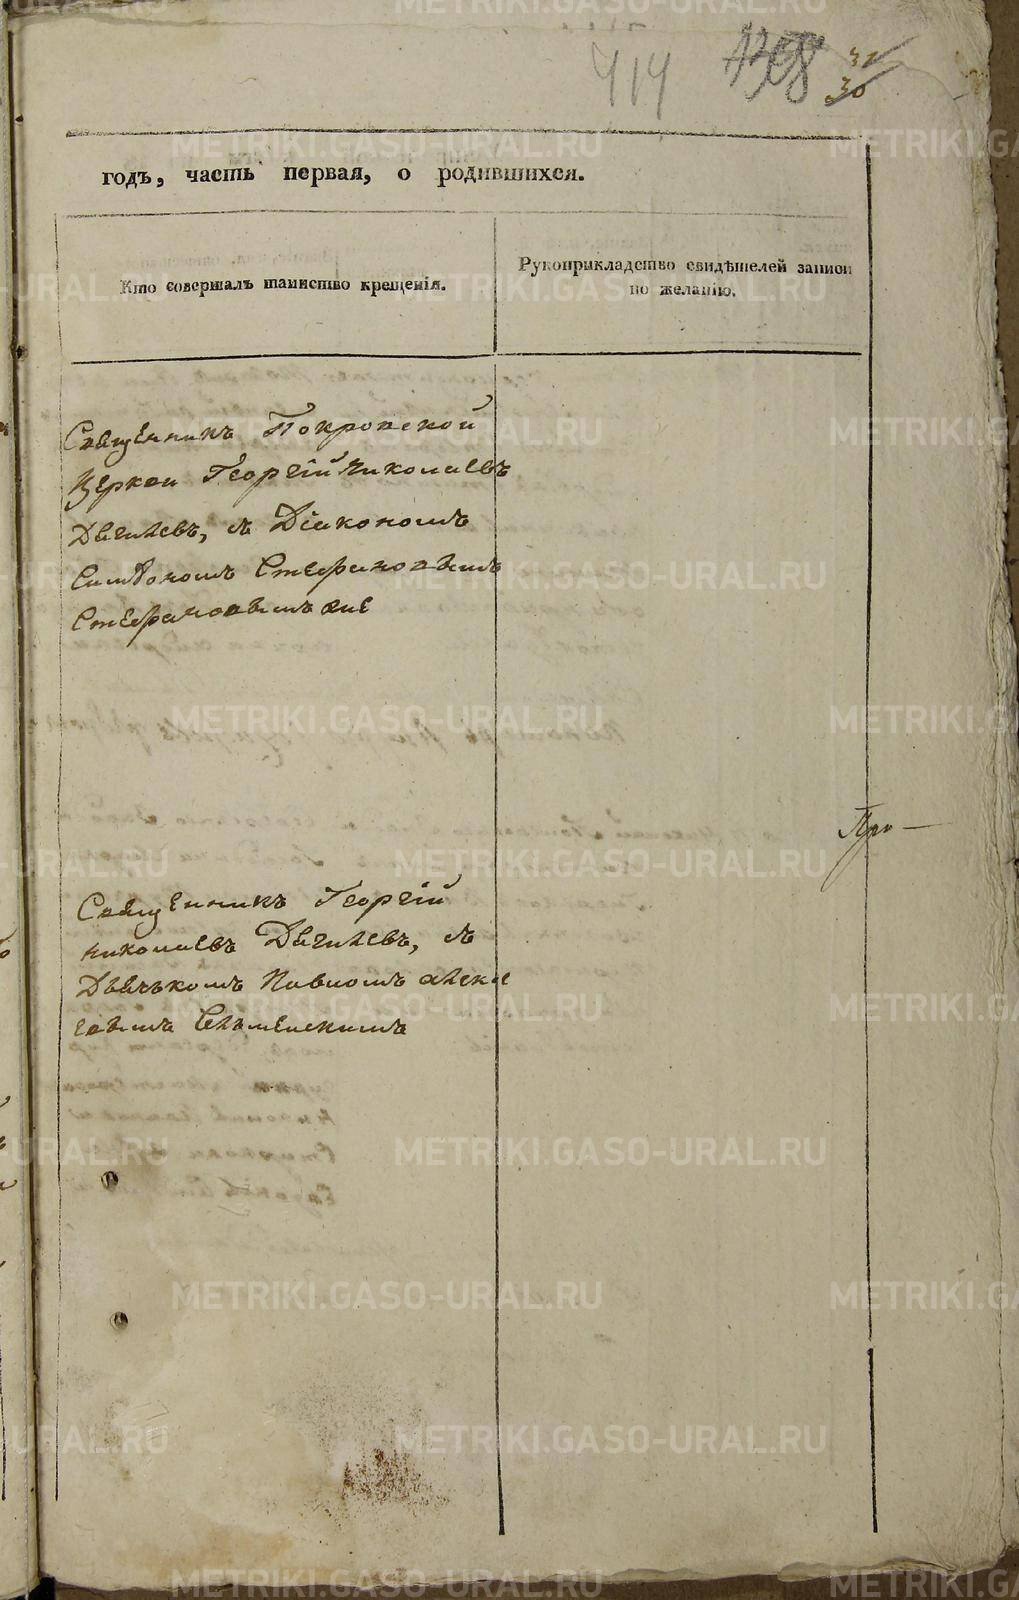 414
31
30
годъ, часть первая, о родившихся.
Кто совершалъ таинство крещенія.
Рукоприкладство свидѣтелей записи
по желанію.
Священникъ Покровской
Церкви Георгій Николаевъ
Дягилевъ, съ Діакономъ
Симѣономъ Стефановымъ
Стефановымъ же
При
Священникъ Георгій
Николаевъ Дягилевъ, съ
Дьячькомъ Павломъ Алекс
еевымъ
METRIKI.GASO-URAL.RU